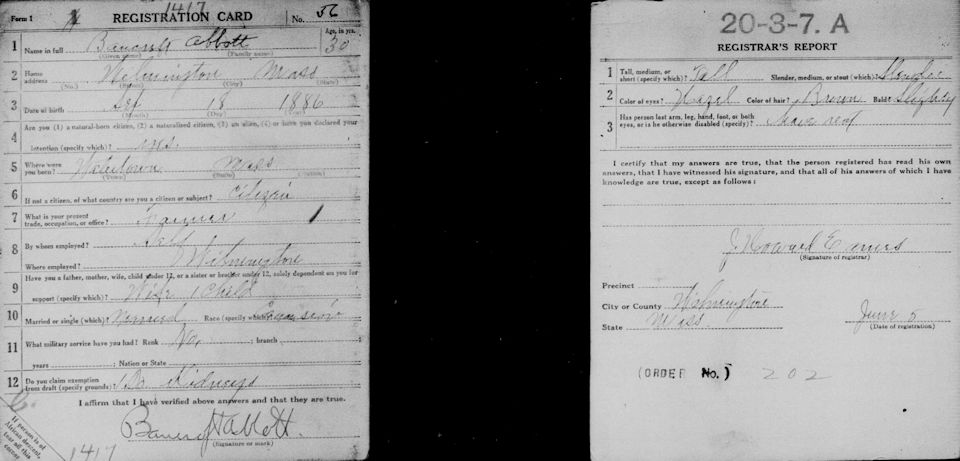 1417
Form 1 REGISTRATION CARD No. 56
1 Name in full Bancroft Abbott Age, in yrs. 30
(Given name) (Family name)
2 Home address Wilmington Mass
(No.) (Street) (City) (State)
3 Date of birth 18 1886
(Month) (Day) (Year)
4 Are you (1) a natural-born citizen, (2) a naturalized citizen, (3) an alien, (4) or have you declared your
intention (specify which)?
5 Where were you born? Watertown Mass
(Town) (State) (Nation)
6 If not a citizen, of what country are you a citizen or subject? Citizen
7 What is your present trade, occupation, or office? Farmer
8 By whom employed? Self
Where employed? Wilmington
9 Have you a father, mother, wife, child under 12, or a sister or brother under 12, solely dependent on you for
support (specify which)? Wife 1 Child
10 Married or single (which)? Married Race (specify which)?
11 What military service have you had? Rank No ; branch
years ; Nation or State
12 Do you claim exemption from draft (specify grounds)? Kidneys
I affirm that I have verified above answers and that they are true.
Bancroft Abbott.
(Signature or mark)
If person is of African descent, tear off this corner
1417
20-3-7. A
REGISTRAR'S REPORT
1 Tall, medium, or short (specify which)? Tall Slender, medium, or stout (which)? Slender
2 Color of eyes? Hazel Color of hair? Brown Bald? Slightly
3 Has person lost arm, leg, hand, foot, or both eyes, or is he otherwise disabled (specify)?
I certify that my answers are true, that the person registered has read his own
answers, that I have witnessed his signature, and that all of his answers of which I have
knowledge are true, except as follows:
J Howard Eames
(Signature of registrar)
Precinct
City or County Wilmington
State Mass.
June 5
(Date of registration)
(ORDER No.) 202